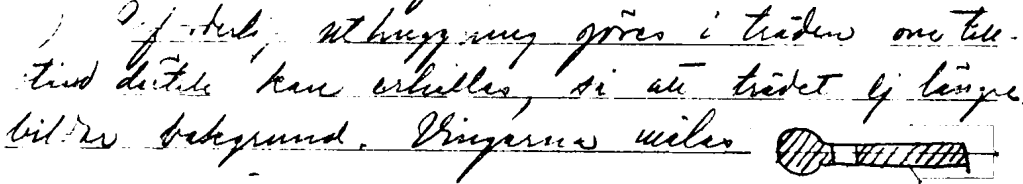 uthuggning göres i träden om till-
stånd därtill kan erhållas, så att trädet ej längre
bildar bakgrund. Vingarna målas